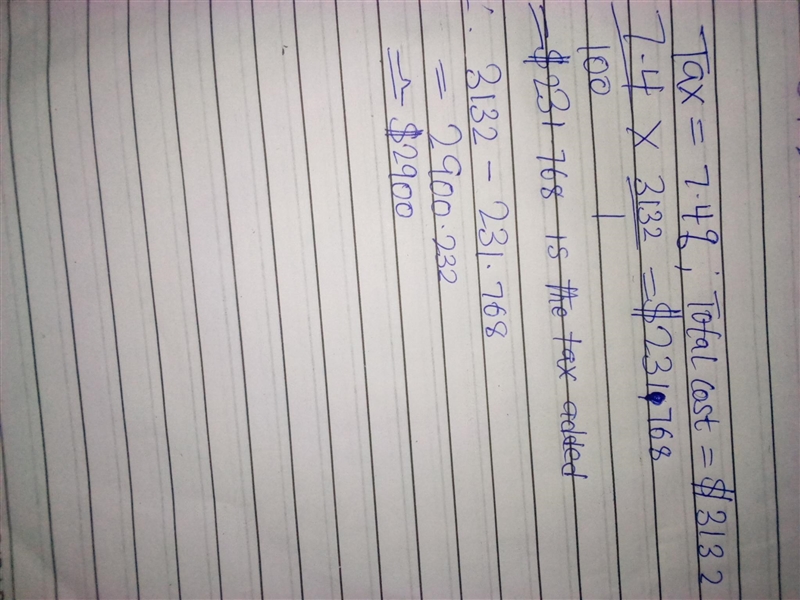 Tax = 7.4%; Total Cost = $3132
7.4 × 3132 = $231.768
100 1
= $231.768 is the tax added
∴ 3132 - 231.768
= 2900.232
≏ $2900